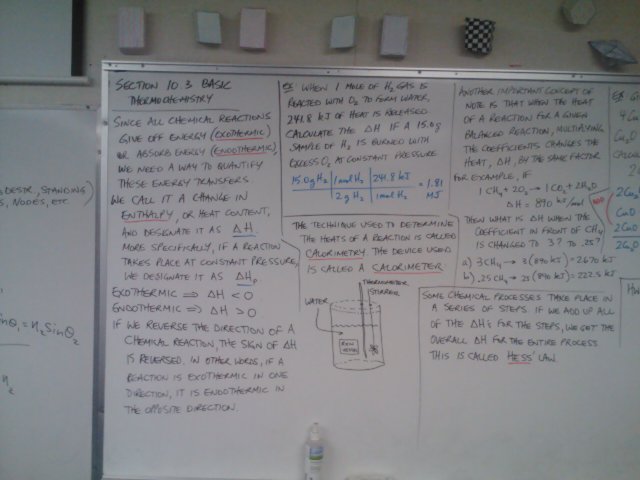 SECTION 10.3 BASIC
THERMOCHEMISTRY
SINCE ALL CHEMICAL REACTIONS
GIVE OFF ENERGY (EXOTHERMIC)
OR ABSORB ENERGY (ENDOTHERMIC),
WE NEED A WAY TO QUANTIFY
THESE ENERGY TRANSFERS
WE CALL IT A CHANGE IN
ENTHALPY, OR HEAT CONTENT,
AND DESIGNATE IT AS ΔH.
MORE SPECIFICALLY, IF A REACTION
TAKES PLACE AT CONSTANT PRESSURE,
WE DESIGNATE IT AS ΔHp
EXOTHERMIC ⇒ ΔH < 0
ENDOTHERMIC ⇒ ΔH > 0
IF WE REVERSE THE DIRECTION OF A
CHEMICAL REACTION, THE SIGN OF ΔH
IS REVERSED. IN OTHER WORDS, IF A
REACTION IS EXOTHERMIC IN ONE
DIRECTION, IT IS ENDOTHERMIC IN
THE OPPOSITE DIRECTION.
EX: WHEN 1 MOLE OF H2 GAS IS
REACTED WITH O2 TO FORM WATER,
241.8 kJ OF HEAT IS RELEASED
CALCULATE THE ΔH IF A 15.0g
SAMPLE OF H2 IS BURNED WITH
EXCESS O2 AT CONSTANT PRESSURE
15.0g H2 | 1 mol H2 | 241.8 kJ = 1.81
2g H2 | 1 mol H2 MJ
THE TECHNIQUE USED TO DETERMINE
THE HEATS OF A REACTION IS CALLED
CALORIMETRY. THE DEVICE USED
IS CALLED A CALORIMETER
THERMOMETER
STIRRER
WATER
RXN
ANOTHER IMPORTANT CONCEPT OF
NOTE IS THAT WHEN THE HEAT
OF A REACTION FOR A GIVEN
BALANCED REACTION, MULTIPLYING
THE COEFFICIENTS CHANGES THE
HEAT, ΔH, BY THE SAME FACTOR
FOR EXAMPLE, IF
1 CH4 + 2O2 → 1 CO2 + 2H2O
ΔH = 890 kJ/mol
THEN WHAT IS ΔH WHEN THE
COEFFICIENT IN FRONT OF CH4
IS CHANGED TO 3? TO .25?
a) 3CH4 → 3(890 kJ) = 2670 kJ
b) .25 CH4 → .25(890 kJ) = 222.5 kJ
SOME CHEMICAL PROCESSES TAKE PLACE IN
A SERIES OF STEPS. IF WE ADD UP ALL
OF THE ΔH's FOR THE STEPS, WE GET THE
OVERALL ΔH FOR THE ENTIRE PROCESS
THIS IS CALLED HESS' LAW.
EX: Gi
4Cu
2Cu2
CuO
2CuO
STANDING)
NODES, ETC
n2 Sin θ2